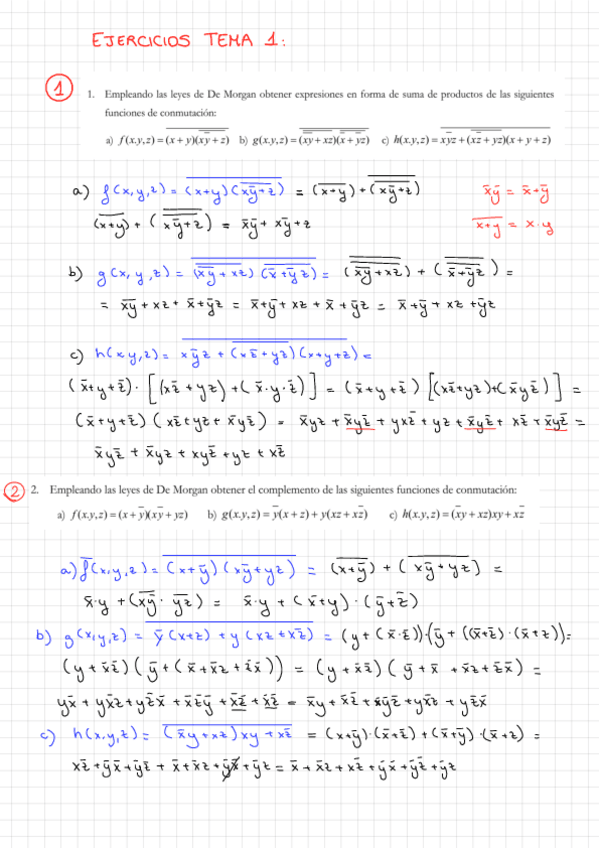 EJERCICIOS TEMA 1:
1
1. Empleando las leyes de De Morgan obtener expresiones en forma de suma de productos de las siguientes
funciones de conmutación:
a) f(x,y,z) = (x + y)(xy + z) b) g(x,y,z) = (xy + xz)(x + yz) c) h(x,y,z) = xyz + (xz + yz)(x + y + z)
a) f(x,y,z) = (x+y)(x̄ȳ+z) = (x+y) + (x̄ȳ+z)
x̄ȳ = x̄+ȳ
(x+y) + (x̄ȳ+z) = x̄ȳ + xȳ + z
x+y = x·y
b) g(x,y,z) = (x̄ȳ + xz) (x̄+ȳz) = (x̄ȳ+xz) + (x̄+ȳz) =
= x̄ȳ + xz + x̄+ȳz = x̄+ȳ + xz + x̄ + ȳz = x̄+ȳ + xz + ȳz
c) h(x,y,z) = xȳz + (xz̄+yz)(x+y+z) =
(x̄+y+z̄)· [(xz̄ + yz) + (x̄·y·z̄)] = (x̄+y+z̄) [(xz̄+yz)+(x̄yz̄)] =
(x̄+y+z̄) (xz̄+yz+x̄yz̄) = x̄yz + x̄yz̄ + yxz̄ + yz + x̄yz̄ + xz̄ + x̄yz̄ =
x̄yz̄ + x̄yz + xyz̄ + yz + xz̄
2
2. Empleando las leyes de De Morgan obtener el complemento de las siguientes funciones de conmutación:
a) f(x,y,z) = (x + ȳ)(xȳ + yz) b) g(x,y,z) = ȳ(x + z) + y(xz + xz̄) c) h(x,y,z) = (x̄y + xz)xy + xz̄
a) f̄(x,y,z) = (x+ȳ) (xȳ+yz) = (x+ȳ) + (xȳ+yz) =
x̄·y + (xȳ · yz) = x̄·y + (x̄+y)·(ȳ+z̄)
b) g(x,y,z) = ȳ(x+z) + y(xz+xz̄) = (y+(x̄·z̄))·(ȳ + ((x̄+z̄)·(x̄+z)) =
(y + x̄z̄) (ȳ + (x̄ + x̄z + z̄x̄)) = (y+x̄z̄) (ȳ+x̄ + x̄z + z̄x̄) =
yx̄ + yx̄z + yz̄x̄ + x̄z̄ȳ + x̄z̄ + x̄z̄ = x̄y + x̄z̄ + x̄ȳz̄ + yx̄z + yz̄x̄
c) h(x,y,z) = (x̄y+xz)xy + xz̄ = (x+ȳ)·(x̄+z̄) + (x̄+ȳ)·(x̄+z) =
xz̄ + ȳx̄ + ȳz̄ + x̄ + x̄z + ȳx̄ + ȳz = x̄ + x̄z + xz̄ + ȳx̄ + ȳz̄ + ȳz